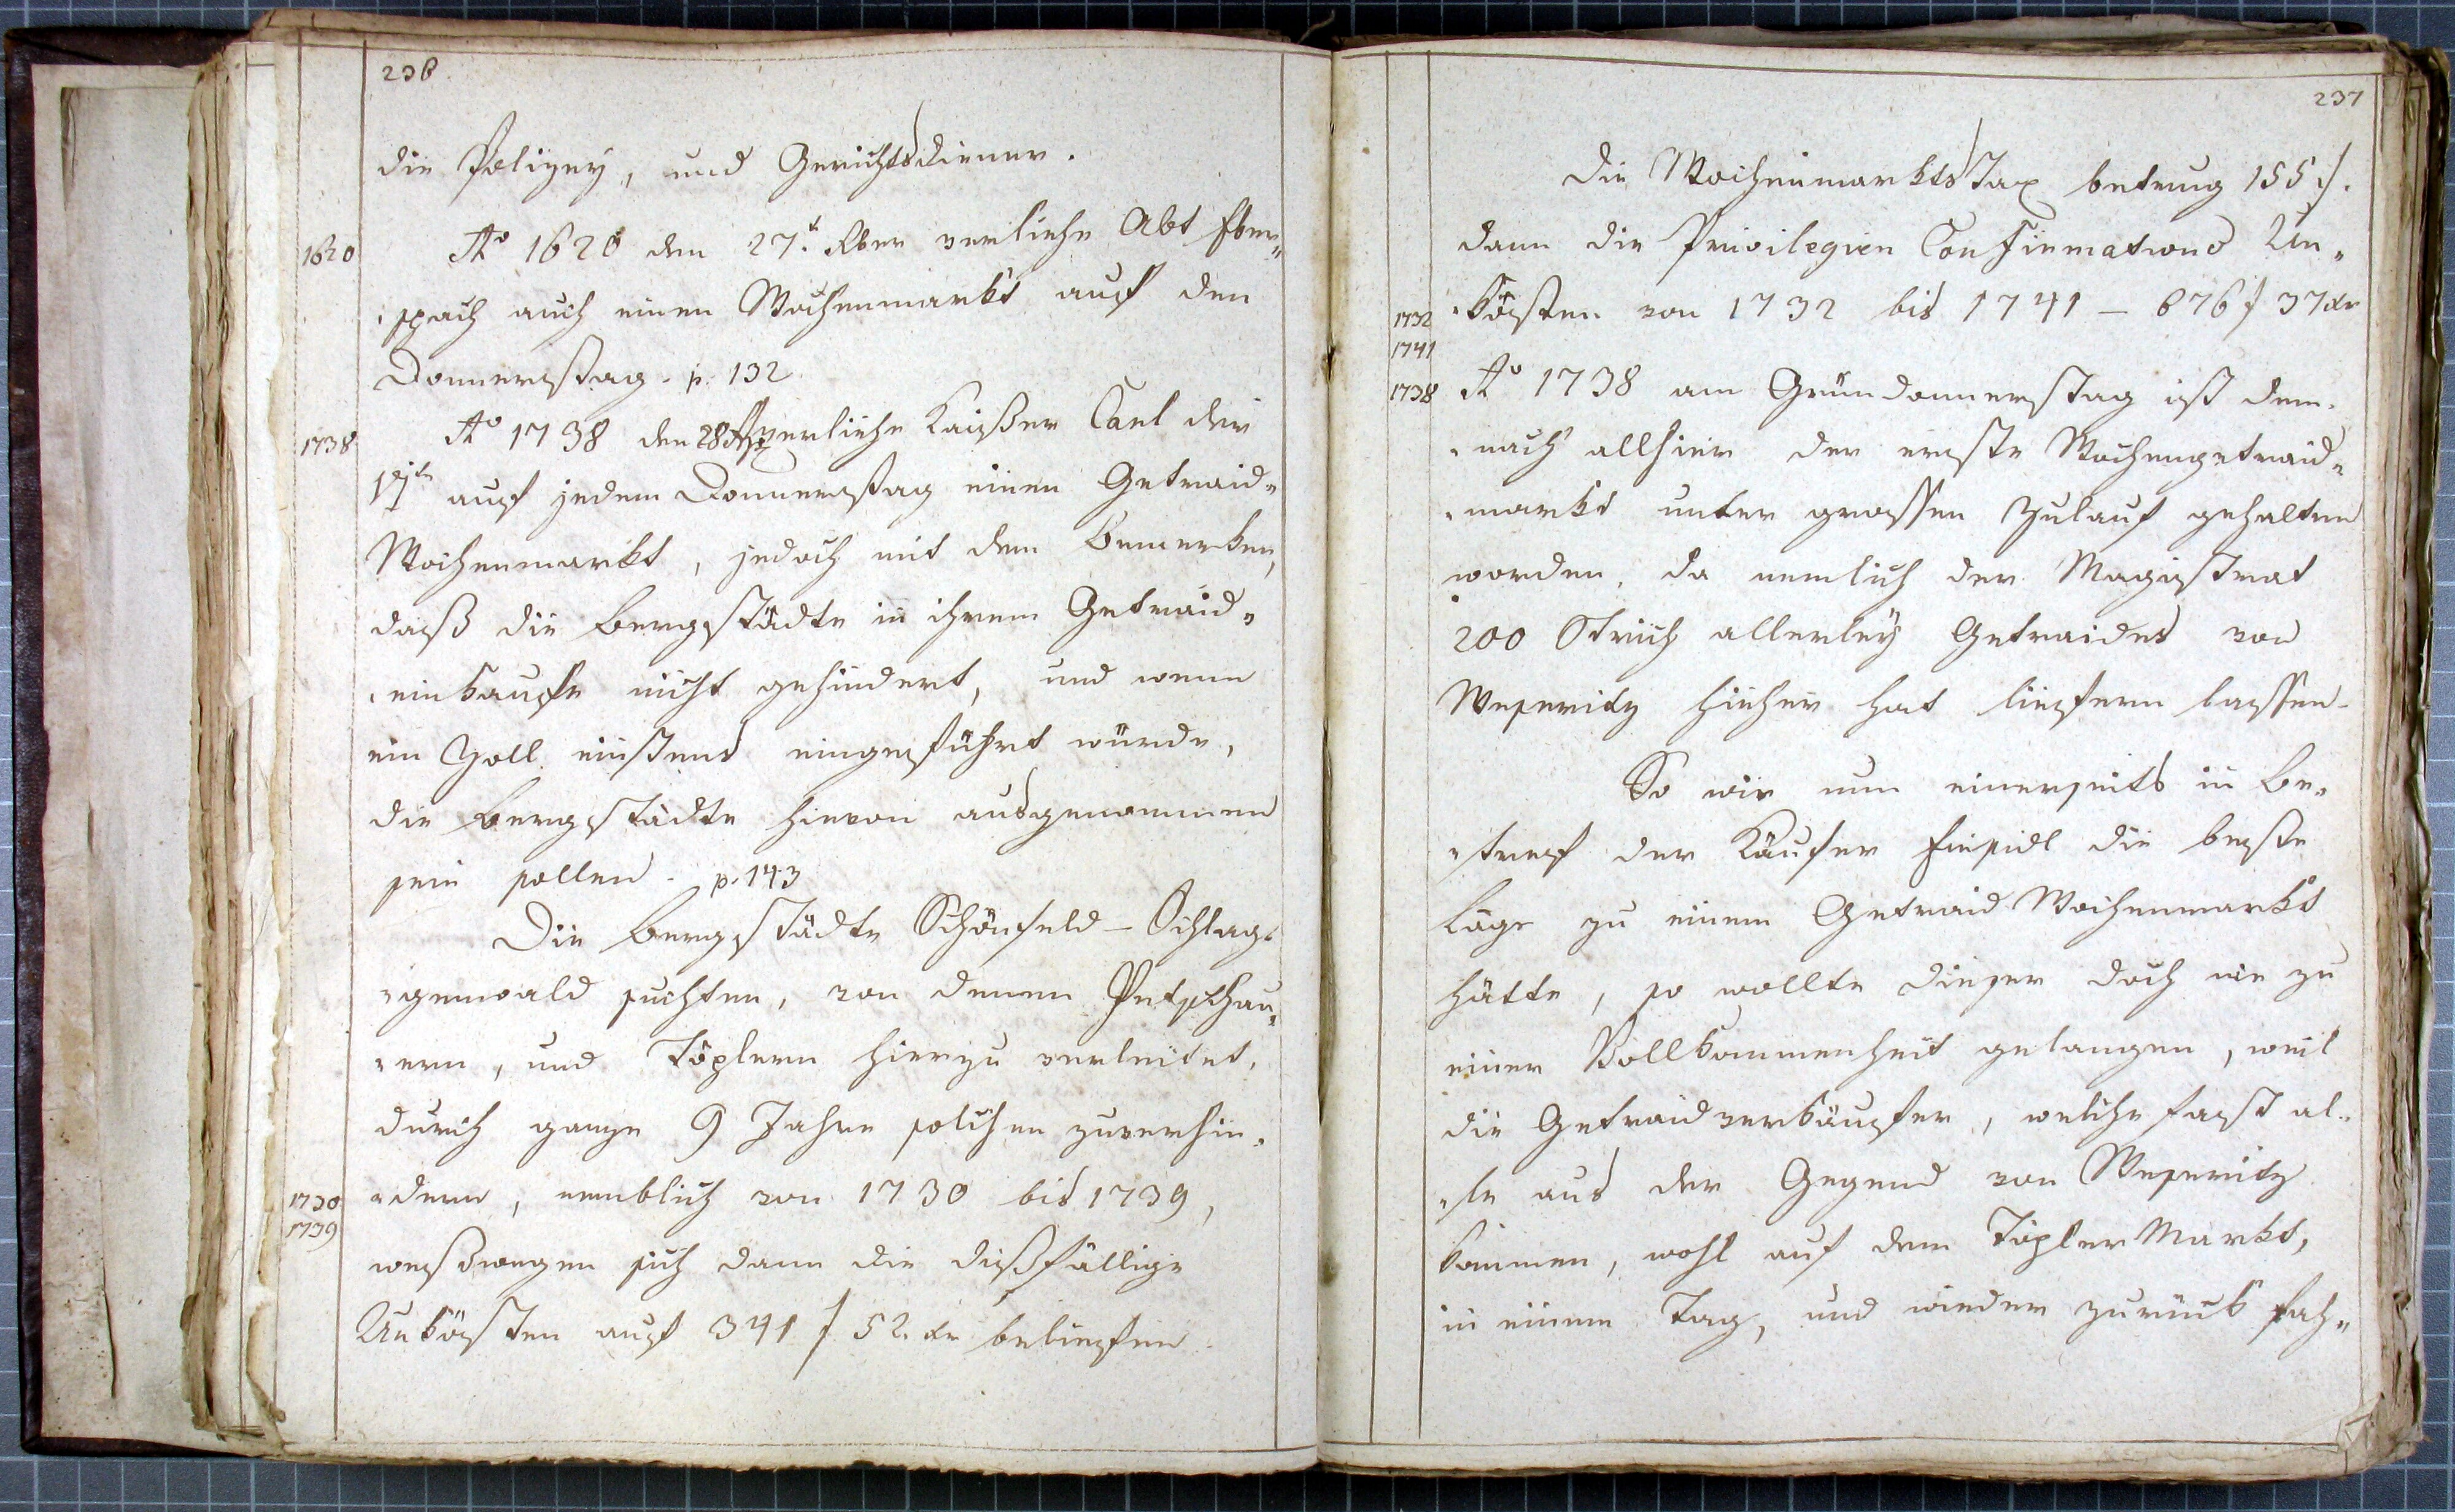 236
die Polizey, und Gerichtsdiener.
1620
Ao 1620 den 27t. 8ber verliehe Abt Eber=
=spach auch einen Wochenmarkt auf den
Donnerstag. p. 132
1738
Ao 1738 den 28 verliehe Kaißer Carl der
VIte auf jedem Donnerstag einen Getraid=
Wochenmarkt, jedoch mit dem Bemerken,
daß die Bergstädte in ihrem Getraid=
=einkaufe nicht gehindert, und wenn
ein Zoll einstens eingeführt würde,
die Bergstädte hievon ausgenommen
sein sollen. p. 143
Die Bergstädte Schönfeld – Schlag=
=genwald suchten, von denen Petschau=
=ern, und Töplern hierzu verleitet,
durch ganze 9 Jahre solchen zuverhin=
1730
=dern, nemblich von 1730 bis 1739,
1739
weßwegen sich dann die dießfällige
Unkösten auf 341 f 52 kr beliefen.
237
Die Wochenmarkts Tax betrug 155 f.
dann die Privilegien Confirmations Un=
1732
=kösten von 1732 bis 1741 – 676 f 37 kr
1741
1738
Ao 1738 am Gründonnerstag ist dem=
=nach allhier der erste Wochengetraid=
=markt unter grossen Zulauf gehalten
worden, da nemlich der Magistrat
200 Strich allerley Getraides von
Weseritz hieher hat liefern lassen.
So wie nun einerseits in Be=
=tref der Käufer Einsidl die beste
Lage zu einem Getraid Wochenmarkt
hätte, so wollte dieser doch nie zu
einer Vollkommenheit gelangen, weil
die Getraidverkäufer, welche fast al=
=le aus der Gegend von Weseritz
kommen, wohl auf dem Töpler Markt,
in einem Tag, und wieder zurück fah=